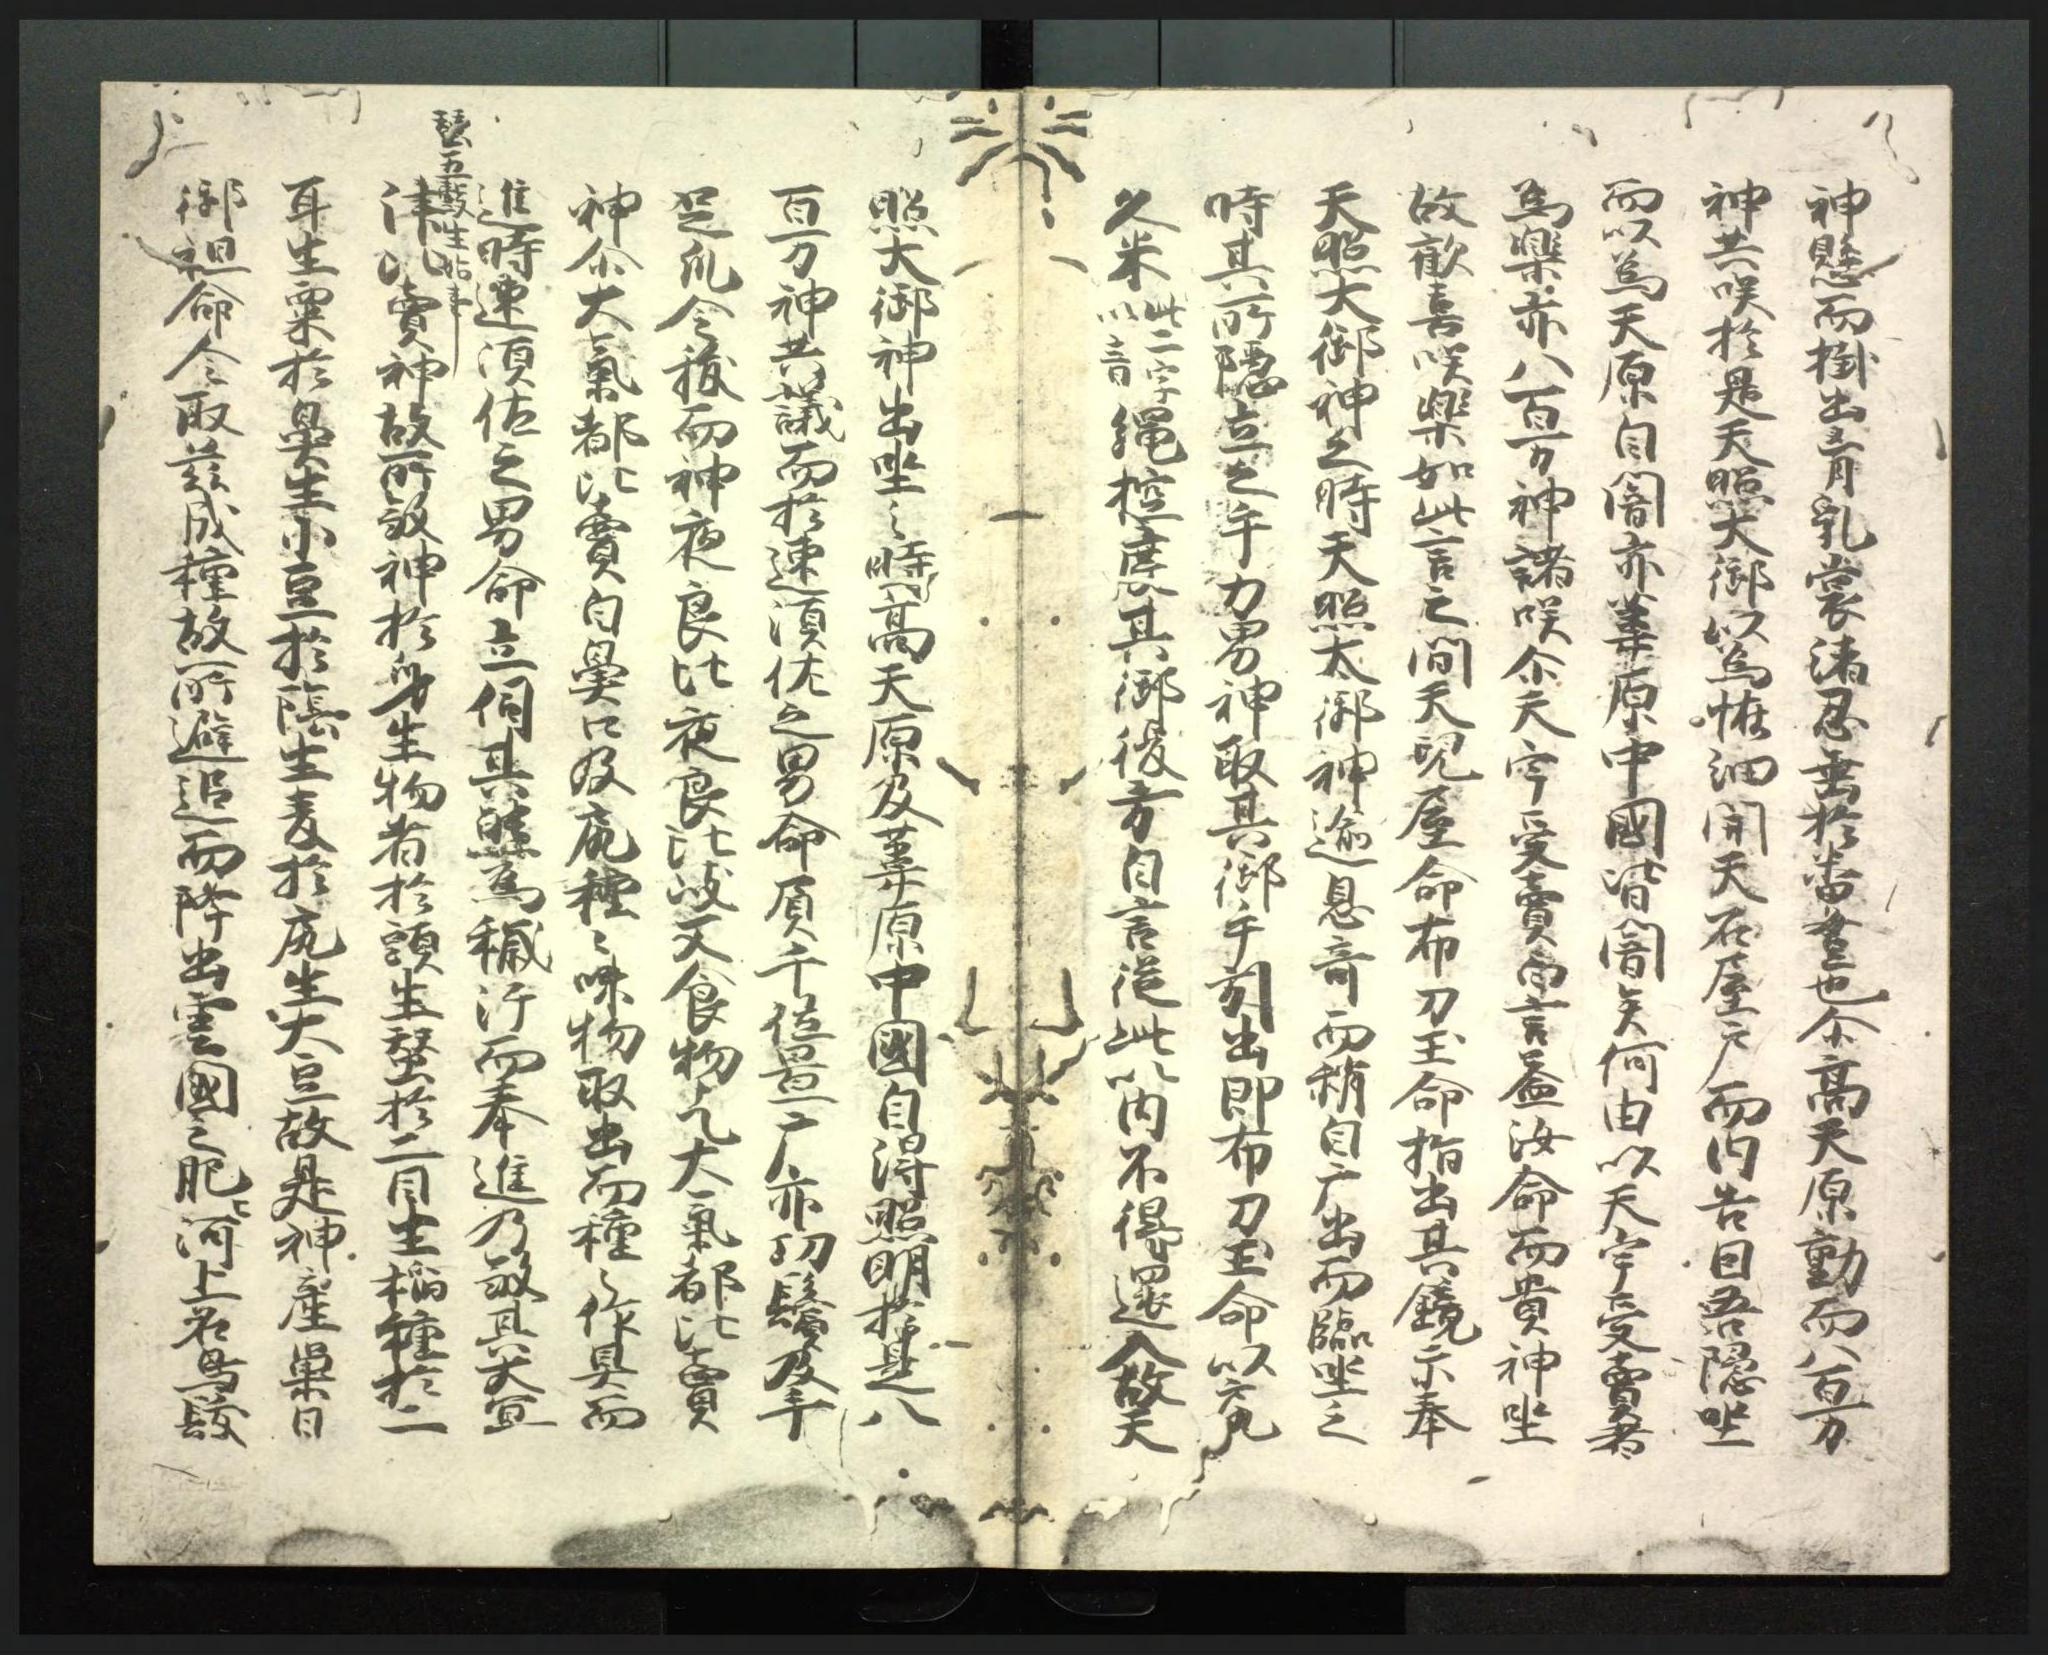 神懸而掛出胷乳裳渚忍垂於番登也尒高天原動而八百万
神共咲於是天照大御以為恠細開天石屋戸而内告日吾隠坐
而以為天原自闇亦葦原中國皆闇矣何由以天宇受賣者
為樂亦八百万神諸咲尒天宇受賣白言益汝命而貴神坐
故歓喜咲樂如此言之間天児屋命布刀玉命指出其鏡示奉
天照大御神之時天照大御神逾思奇而稍自戸出而臨坐之
時其所隠立之手力男神取其御手引出即布刀玉命以
久米此二字以音縄控度其御後方白言従此以内不得還入故天
照大御神出坐之時高天原及葦原中國自得照明於是八
百万神共議而於速須佐之男命負千位置戸亦切鬚及手
足爪令祓而神夜良比夜良比岐又食物乞大氣都比賣
神尒大氣都比賣自鼻口及尻種々味物取出而種々作具而
進時速須佐之男命立伺其態為穢汙而奉進乃殺其大宜
蚕五穀生始事
津比賣神故所殺神於身生物者於頭生蚕於二目生稲種於二
耳生粟於鼻生小豆於陰生麦於尻生大豆故是神産巣日
御祖命令取茲成種故所避追而降出雲國之肥河上名鳥髪